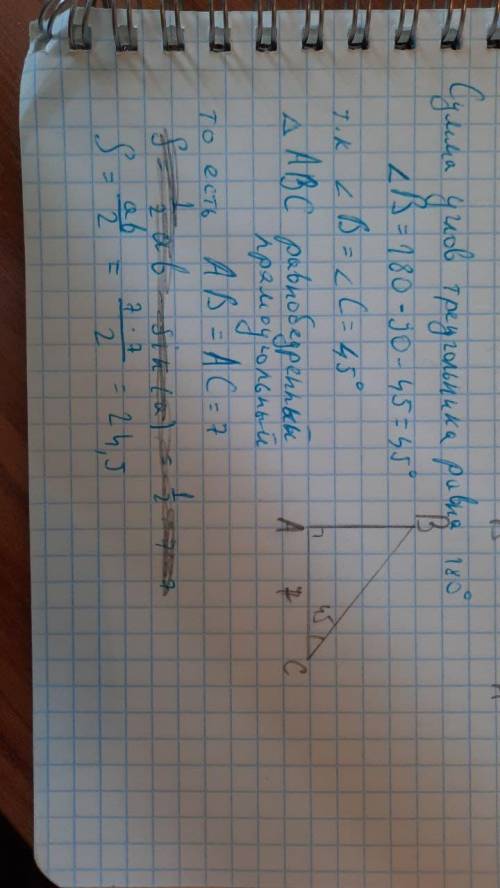 Сумма углов треугольника равна 180°
∠B = 180 - 90 - 45 = 45°
т.к ∠B = ∠C = 45°
△ ABC равнобедренный
прямоугольный
то есть AB = AC = 7
S = 1/2 ab · sin(a) = 1/2 · 7 · 7
S = ab/2 = 7·7/2 = 24,5
B
A
7
45
C